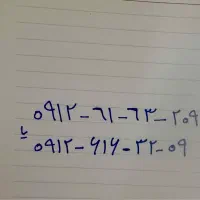 ۰۹۱۲-۶۱-۶۳-۲۰۹
یا
۰۹۱۲-۶۱۶-۳۲-۰۹